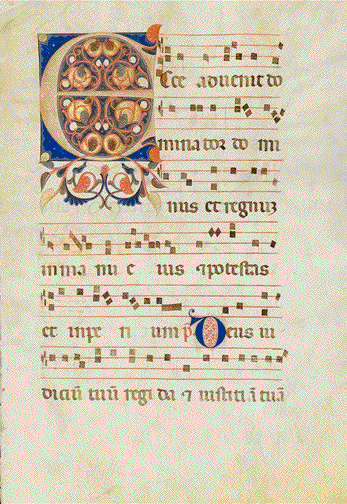 Ecce aduenit do
minator do mi
nus et regnuʒ
in ma nu e ius ⁊ potestas
et impe ri um p̄ Deus iu
diciū tuū regi da ⁊ iustitiā tuā